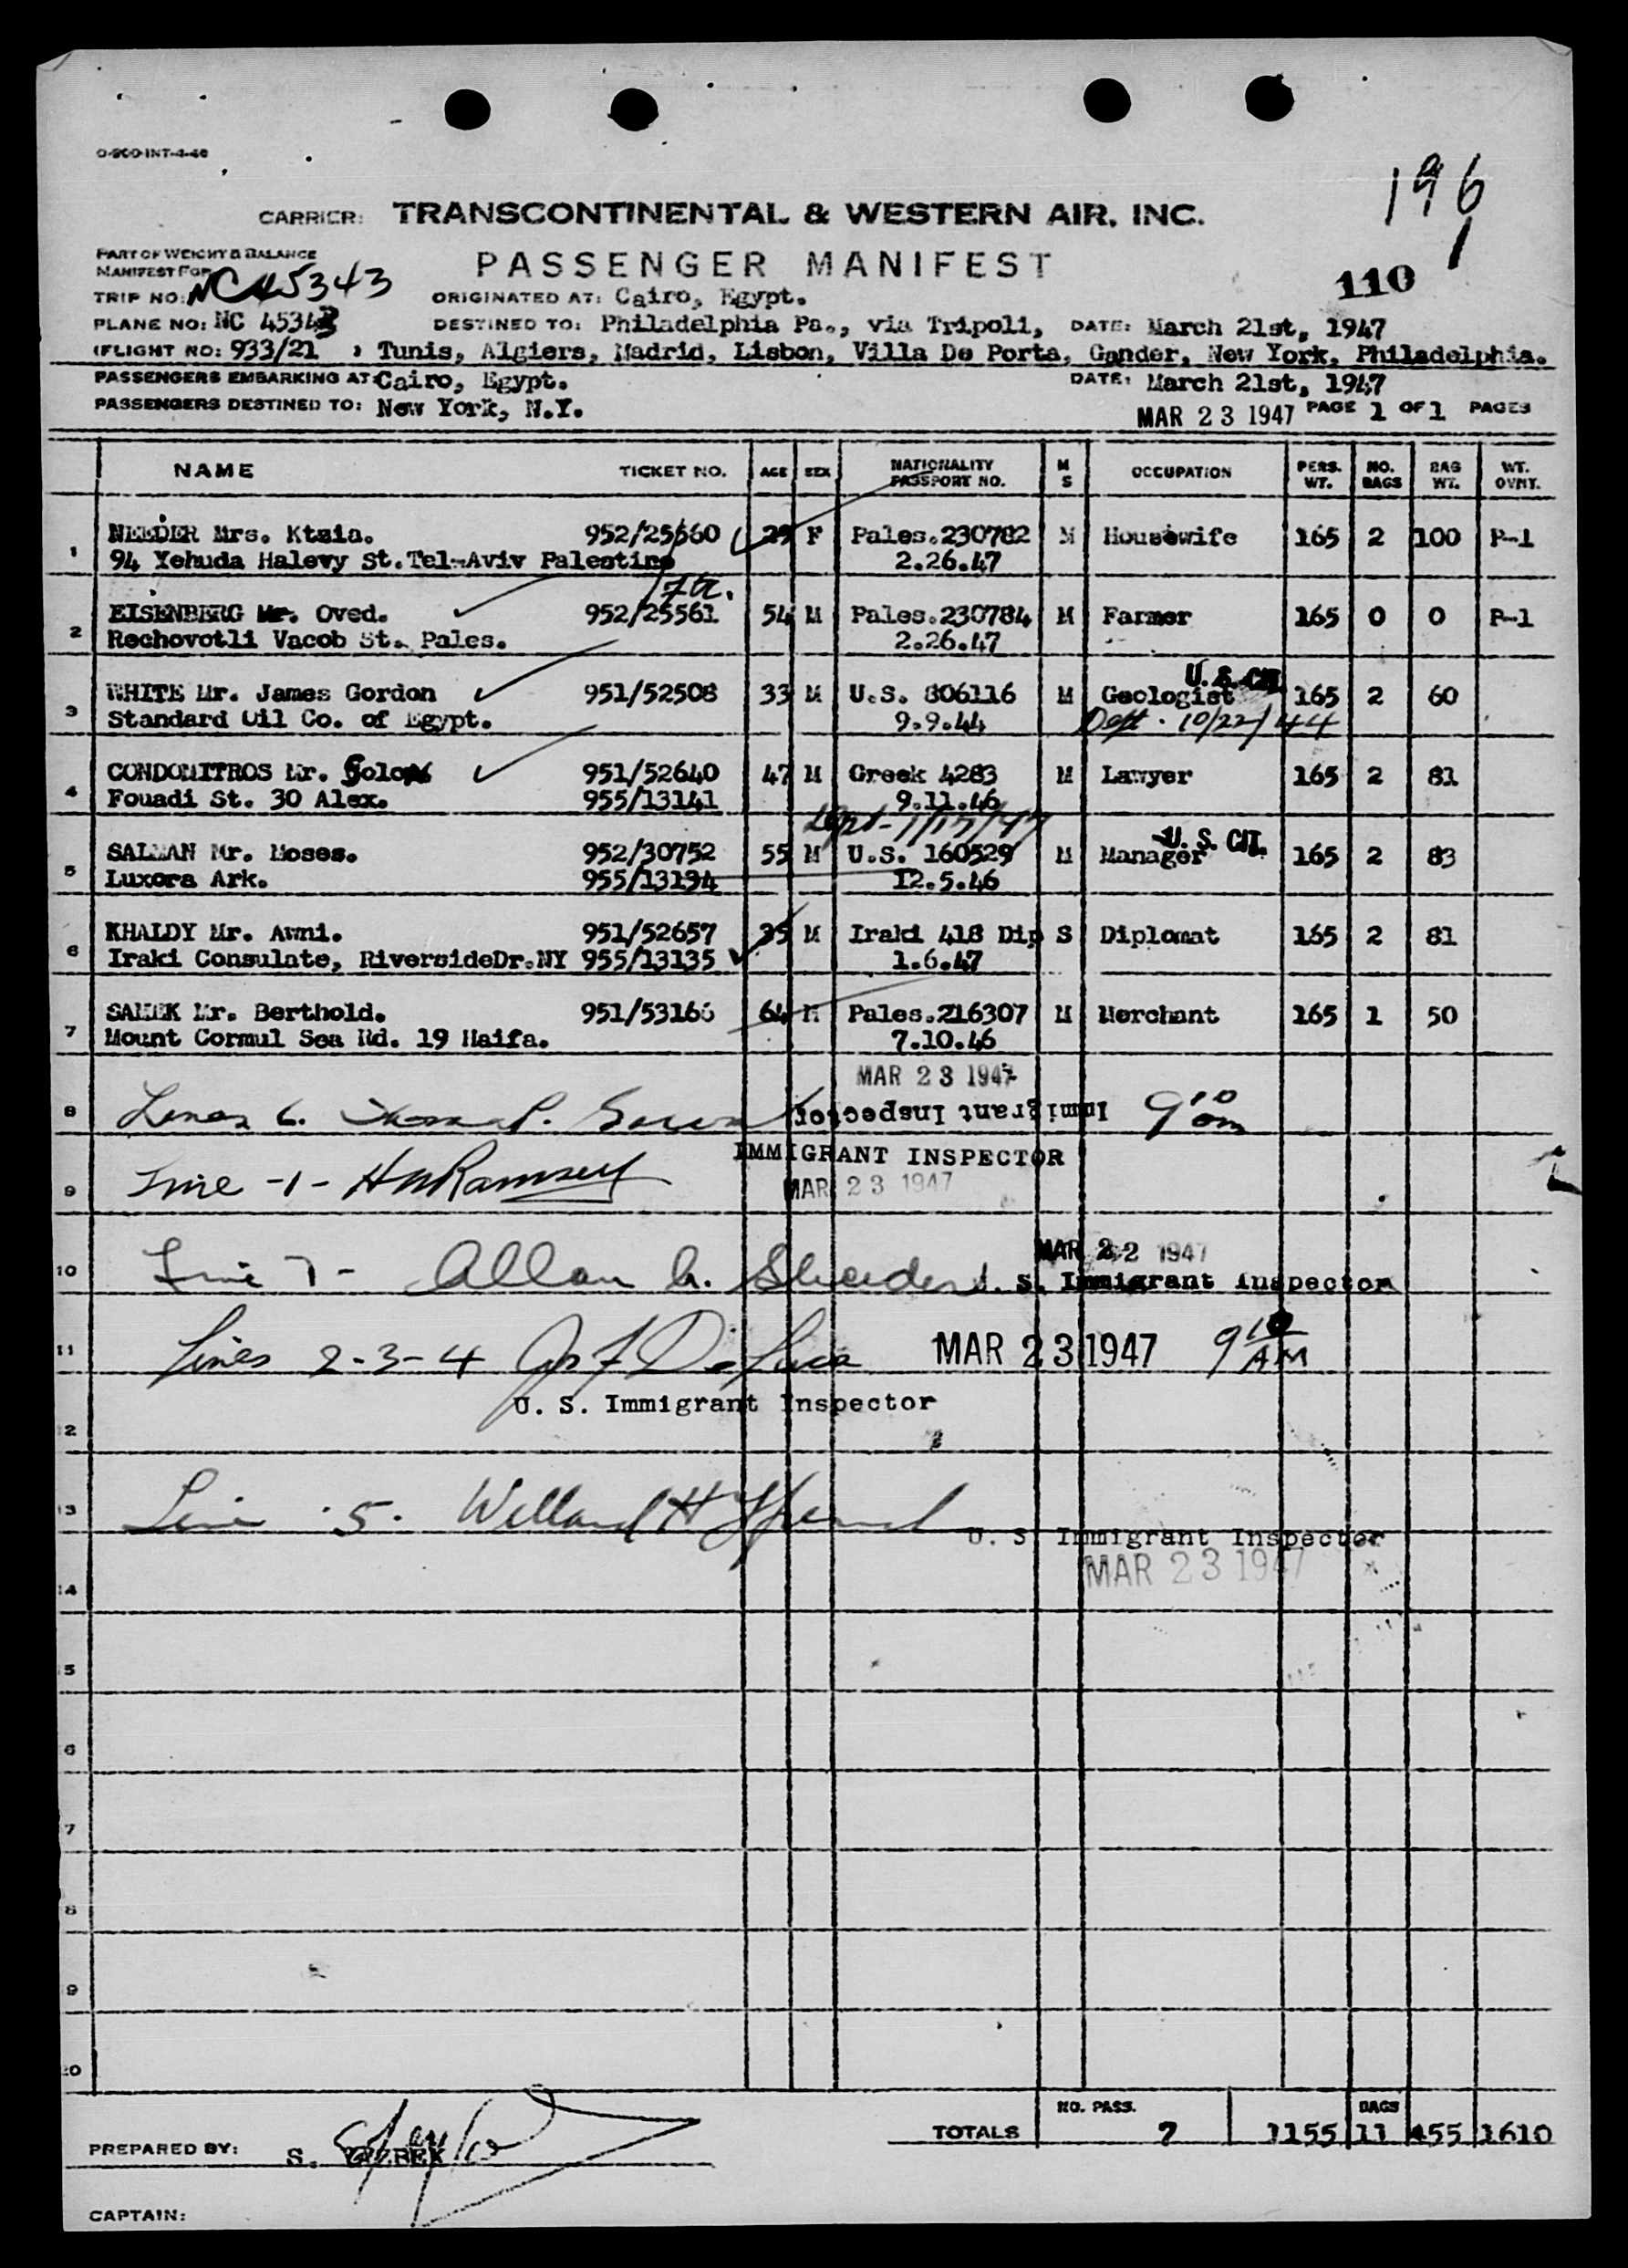 O-900-INT-4-46
196
1
CARRIER: TRANSCONTINENTAL & WESTERN AIR, INC.
PART OF WEIGHT & BALANCE
MANIFEST FOR
PASSENGER MANIFEST
110
TRIP NO: NC 45343
ORIGINATED AT: Cairo, Egypt.
PLANE NO: NC 45343 DESTINED TO: Philadelphia Pa., via Tripoli, DATE: March 21st, 1947
(FLIGHT NO: 933/21 ) Tunis, Algiers, Madrid, Lisbon, Villa De Porta, Gander, New York, Philadelphia.
PASSENGERS EMBARKING AT: Cairo, Egypt. DATE: March 21st, 1947
PASSENGERS DESTINED TO: New York, N.Y. MAR 23 1947 PAGE 1 OF 1 PAGES
NAME TICKET NO. AGE SEX NATIONALITY PASSPORT NO. M S OCCUPATION PERS. WT. NO. BAGS BAG WT. WT. OVNT.
1 NEEDER Mrs. Ktzia. 952/25560 29 F Pales.230782 M Housewife 165 2 100 P-1
94 Yehuda Halevy St.Tel-Aviv Palestine 2.26.47
2 EISENBERG Mr. Oved. 952/25561 54 M Pales.230784 M Farmer 165 0 0 P-1
Rechovotli Vacob St. Pales. 2.26.47
U.S. CIT.
3 WHITE Mr. James Gordon 951/52508 33 M U.S. 806116 M Geologist 165 2 60
Standard Oil Co. of Egypt. 9.9.44 Dept. 10/22/44
4 CONDOMITROS Mr. Solon 951/52640 47 M Greek 4283 M Lawyer 165 2 81
Fouadi St. 30 Alex. 955/13141 9.11.46
Dept-1/17/47
U.S. CIT.
5 SALMAN Mr. Moses. 952/30752 55 M U.S. 160529 M Manager 165 2 83
Luxora Ark. 955/13134 12.5.46
6 KHALDY Mr. Awni. 951/52657 35 M Iraki 418 Dip S Diplomat 165 2 81
Iraki Consulate, RiversideDr.NY 955/13135 1.6.47
7 SAMEK Mr. Berthold. 951/53166 64 M Pales.216307 M Merchant 165 1 50
Mount Cormul Sea Rd. 19 Haifa. 7.10.46
MAR 23 1947
8 Immigrant Inspector 9 10
IMMIGRANT INSPECTOR
9 Line -1- HMRamsey MAR 23 1947
MAR 22 1947
10 Line 7- Allan U. S. Immigrant Inspector
11 Lines 2-3-4 MAR 23 1947 9 10 AM
U. S. Immigrant Inspector
12
13 Line 5. Willard H
U. S. Immigrant Inspector
MAR 23 1947
14
5
6
7
8
9
20
NO. PASS. BAGS
TOTALS 7 1155 11 455 1610
PREPARED BY: S.
CAPTAIN: